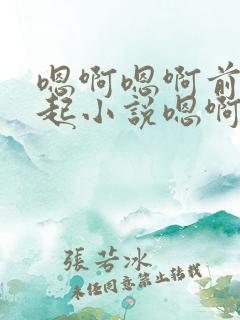 嗯啊嗯啊前
起小说嗯啊
張若冰
未经同意禁止转载